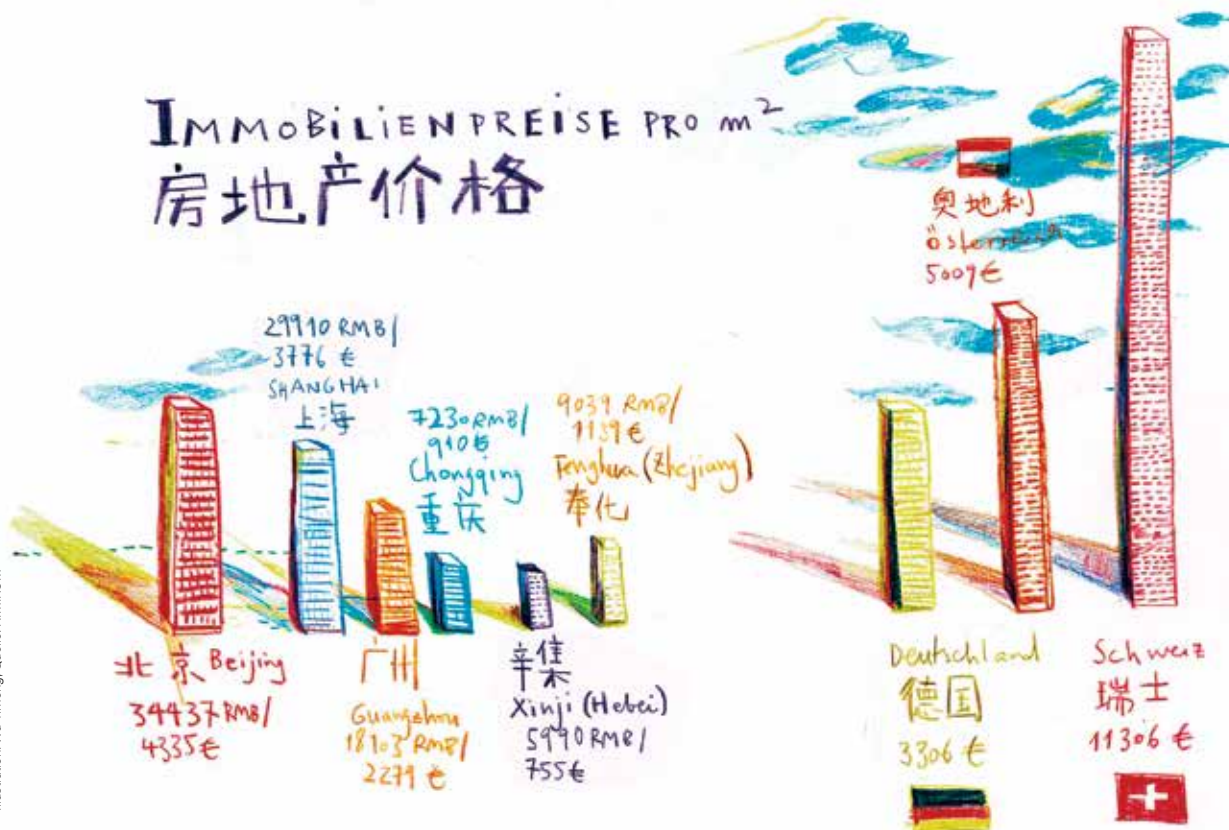 IMMOBILIENPREISE PRO m²
房地产价格
29910 RMB/
3776 €
SHANGHAI
上海
7230 RMB/
910 €
Chongqing
重庆
9039 RMB/
1139 €
Fenghua (Zhejiang)
奉化
奥地利
Österreich
5009 €
北京 Beijing
34437 RMB/
4335 €
广州
Guangzhou
18103 RMB/
2279 €
辛集
Xinji (Hebei)
5990 RMB/
755 €
Deutschland
德国
3306 €
Schweiz
瑞士
11306 €